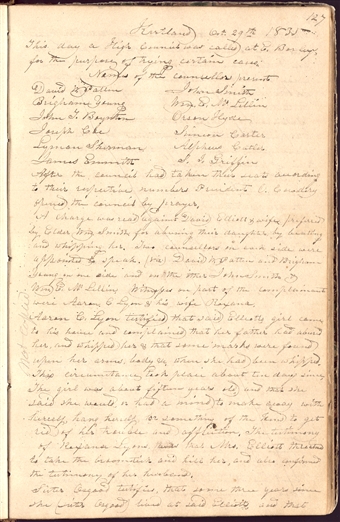 127
Kirtland Oct. 29th 1835
This day a High Council was called, at
for the purpose of trying certain cases.
Names of the counsellors present
David W Patten John Smith
Brigham Young Wm. E. Mc Lellin
John F. Boynton Orson Hyde
Joseph Coe Simeon Carter
Lyman Sherman Alpheus Cutler
James Emmett
After the council had taken their seats according
to their respective numbers President O. Cowdery
opened the council by prayer,
A charge was read against David Elliott & wife prefered
by Elder Wm Smith for abusing their daughter by beating
and whipping her. Two counsellors on each side were
appointed to speak. (viz) David W. Patten and Brigham
Young on one side and on the other John Smith &
Wm E. Mc Lellin. Witnesses on part of the complainant
were Aaron C. Lyon & his wife Roxana.
Aaron C. Lyon testified that said Elliotts girl came
to his house and complained that her father had abused
her, and whipped her & that some marks were found
upon her arms, body &c when she had been whipped.
This circumstance took place about ten days since
The girl was about fifteen years old, and that she
said she wanted, or had a mind to make away with
herself, hang herself or something of the kind to get
rid of her trouble and affliction. The testimony
of Roxana Lyons her Mrs. Elliott threatened
to take the and kill her, and also confirmed
the testimony of her husband.
Sister Osgood testifies, that some three years since
she sister Osgood lived at said Elliotts and that